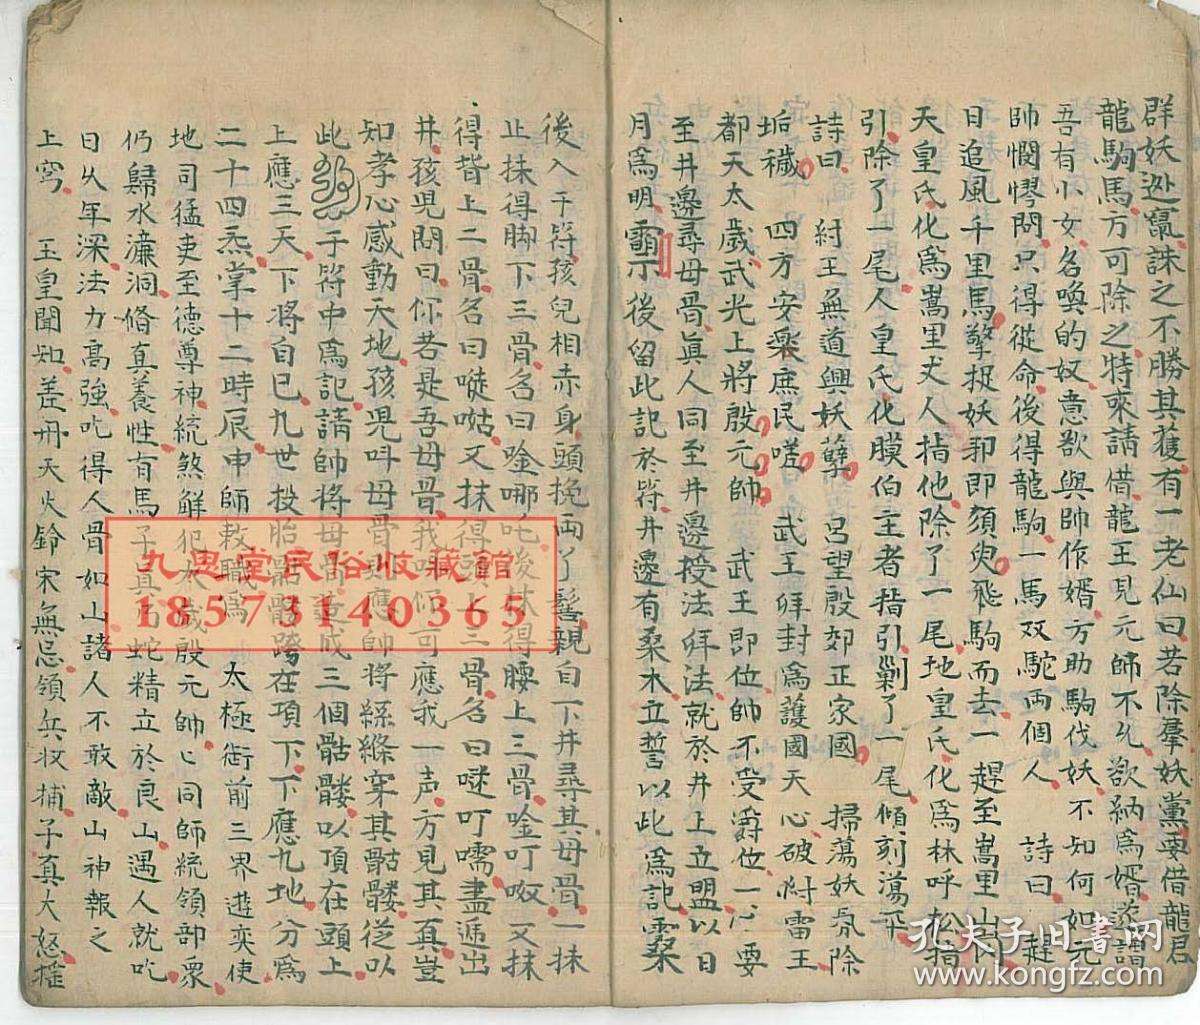 群妖逊竄誅之不勝其獲有一老仙曰若除羣妖黨要借龍君
龍駒馬方可除之特來請借龍王見元帥不允欲納為婿遂謂
吾有小女名喚的奴意欲與帥作婿方助駒伐妖不知何如元
帥憫憀問只得從命後得龍駒一馬双駝両個人　詩曰　趕
日追風千里馬擎捉妖邪即須臾飛駒而去一趕至嵩里山間
天皇氏化為嵩里丈人指他除了一尾地皇氏化為林呼松指
引除了一尾人皇氏化膜伯主者指引剿了一尾傾刻蕩平
詩曰　紂王無道興妖孽　呂望殷郊正家國　掃蕩妖氛除
垢穢　四方安楽庶民嗟　武王拜封為護國天心破紂雷王
都天太歲武光上將殷元帥　武王即位帥不受爵位一心要
至井邊尋母骨真人同至井邊授法拜法就於井上立盟以日
月為明霸示後留此記於符井邊有桑木立誓以此為記靈桒
後入于符孩兒相赤身頭挽両了髻親自下井尋其母骨一抹
止抹得脚下三骨名曰唫哪吒後抹得腰上三骨唫叮呶又抹
得背上二骨名曰嗹咕又抹得頭上三骨名曰哒叮嚅盡逓出
井孩児問曰你若是吾母骨我叫你可應我一声方見其真豈
知孝心感動天地孩児呌母骨現應帥將絲縧穿其骷髏從以
此于符中為記請帥將母骨速成三個骷髏以頂在頭上
上應三天下將自已九世投胎骷髏跨在項下下應九地分為
二十四炁掌十二時辰申師敕職為　太極衙前三界遊奕使
地司猛吏至德尊神統煞解犯太歲殷元帥〻同師統領部衆
仍歸水濂洞脩真養性有馬子真乃蛇精立於良山遇人就吃
日久年深法力高強吃得人骨如山諸人不敢敵山神報之
上穹　玉皇聞知差丹天火鈴宋無忌領兵收捕子真大怒搖
九畏堂民俗收藏館
18573140365
孔夫子旧書网
www.kongfz.com